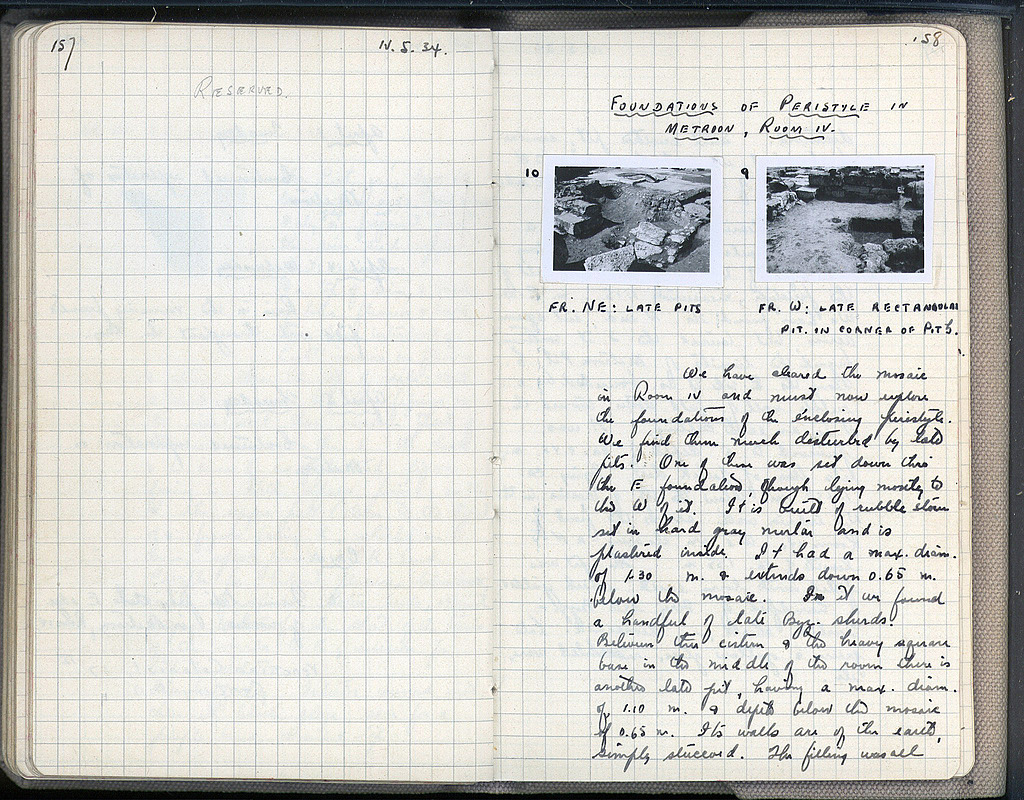 157
IV. 5. 34.
RESERVED.
158
FOUNDATIONS OF PERISTYLE IN
METROON, ROOM IV.
10
9
FR. NE: LATE PITS
FR. W: LATE RECTANGULAR
PIT. IN CORNER OF PIT
We have cleared the mosaic
in Room IV and must now explore
the foundations of the enclosing peristyle.
We find them much disturbed by late
pits. One of these was set down thro
the E foundation, though lying mostly to
the W of it. It is built of rubble stone
set in hard gray mortar and is
plastered inside. It had a max. diam.
of 1.30 m. & extends down 0.65 m.
below the mosaic. In it we found
a handful of late Byz. sherds.
Between this cistern & the heavy square
base in the middle of the room there is
another late pit, having a max. diam.
of 1.10 m. & depth below the mosaic
of 0.65 m. Its walls are of the earth,
simply stuccoed. The filling was all